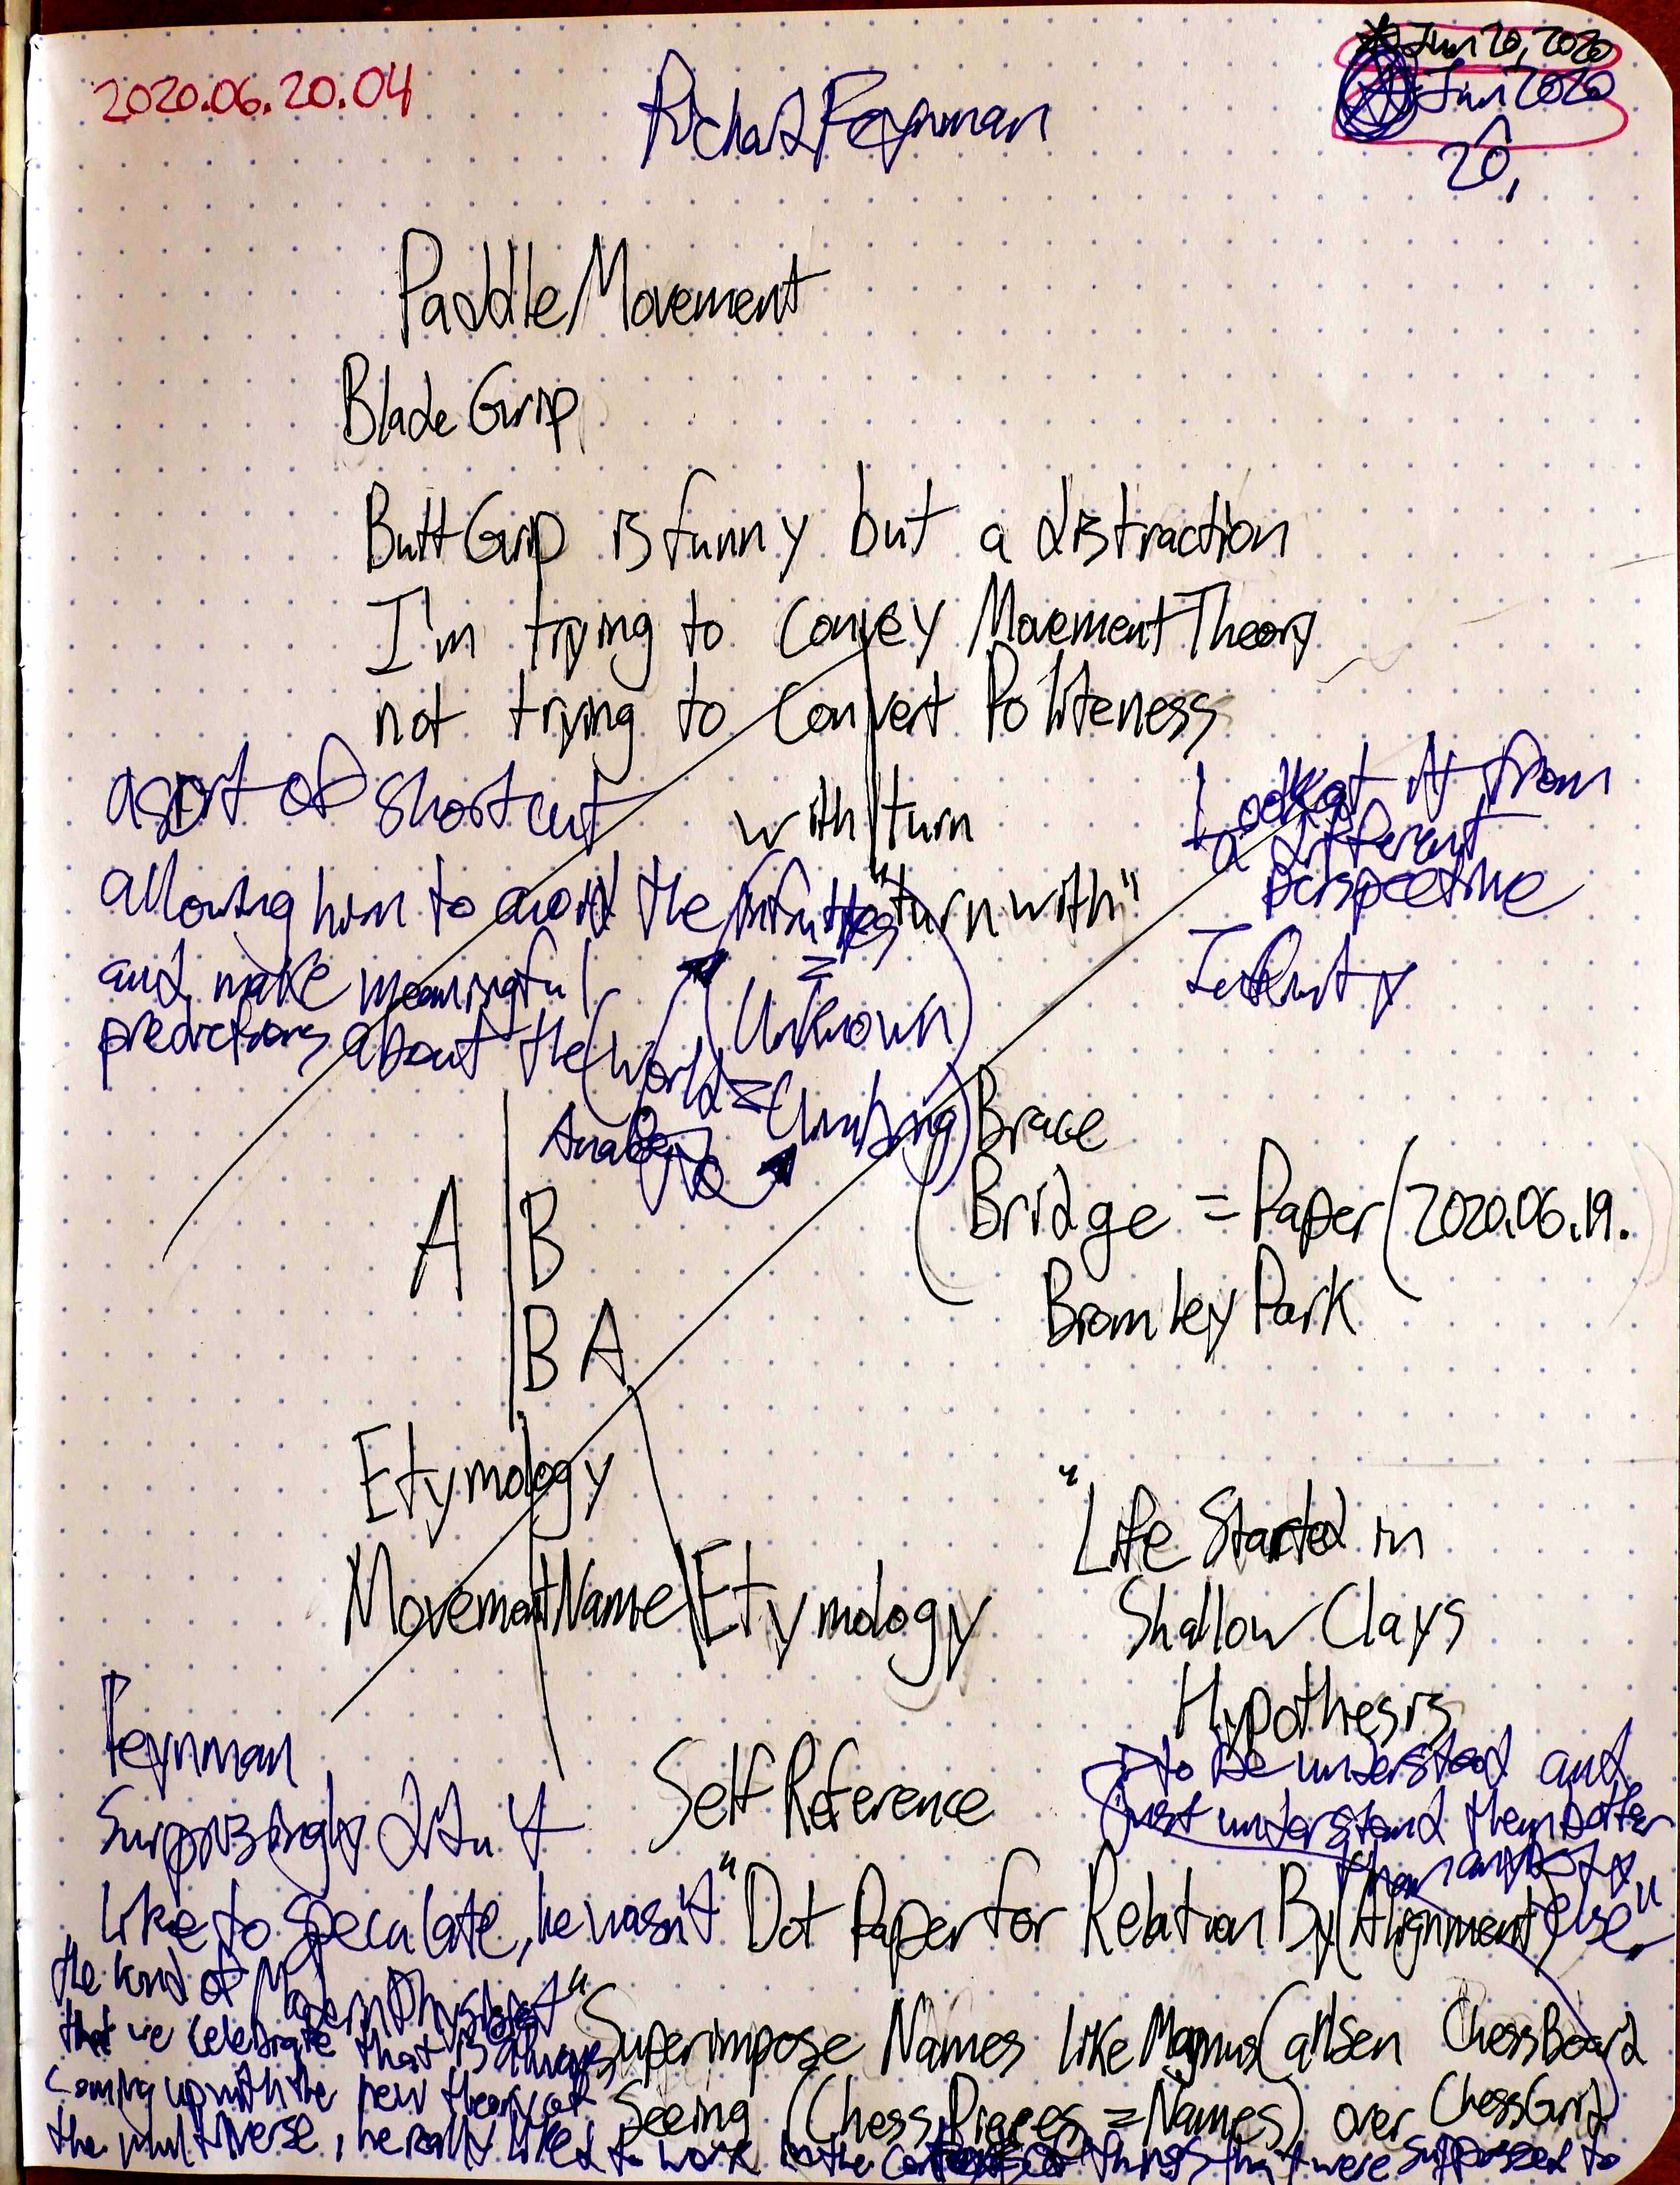 2020.06.20.04
Richard Feynman
Jun 20, 2020
Jun 2020
20,
Paddle Movement
Blade Grip
Butt Grip is funny but a distraction
I'm trying to convey Movement Theory
not trying to convert Politeness
a sort of shortcut
allowing him to avoid the infinities
and make meaningful
predictions about the world
with turn
"turn with"
Look at it from
a different
perspective
= Climbing)
(Unknown)
A B
B A
Brace
Bridge = Paper (2020.06.19.
Bromley Park
Etymology
Movement Name Etymology
"Life Started in
Shallow Clays
Hypothesis
Self Reference
"Dot Paper for Relation By (Alignment)
Superimpose Names like Magnus Carlsen ChessBoard
Seeing (Chess Pieces = Names) over ChessGrid
Feynman
Surprisingly didn't
like to speculate, he wasn't
the kind of Modern Physicist
that we celebrate that is always
coming up with the new theory of
the multiverse, he really liked to work in the of things that were supposed to
to be understood and
just understand them better
than anybody
else"